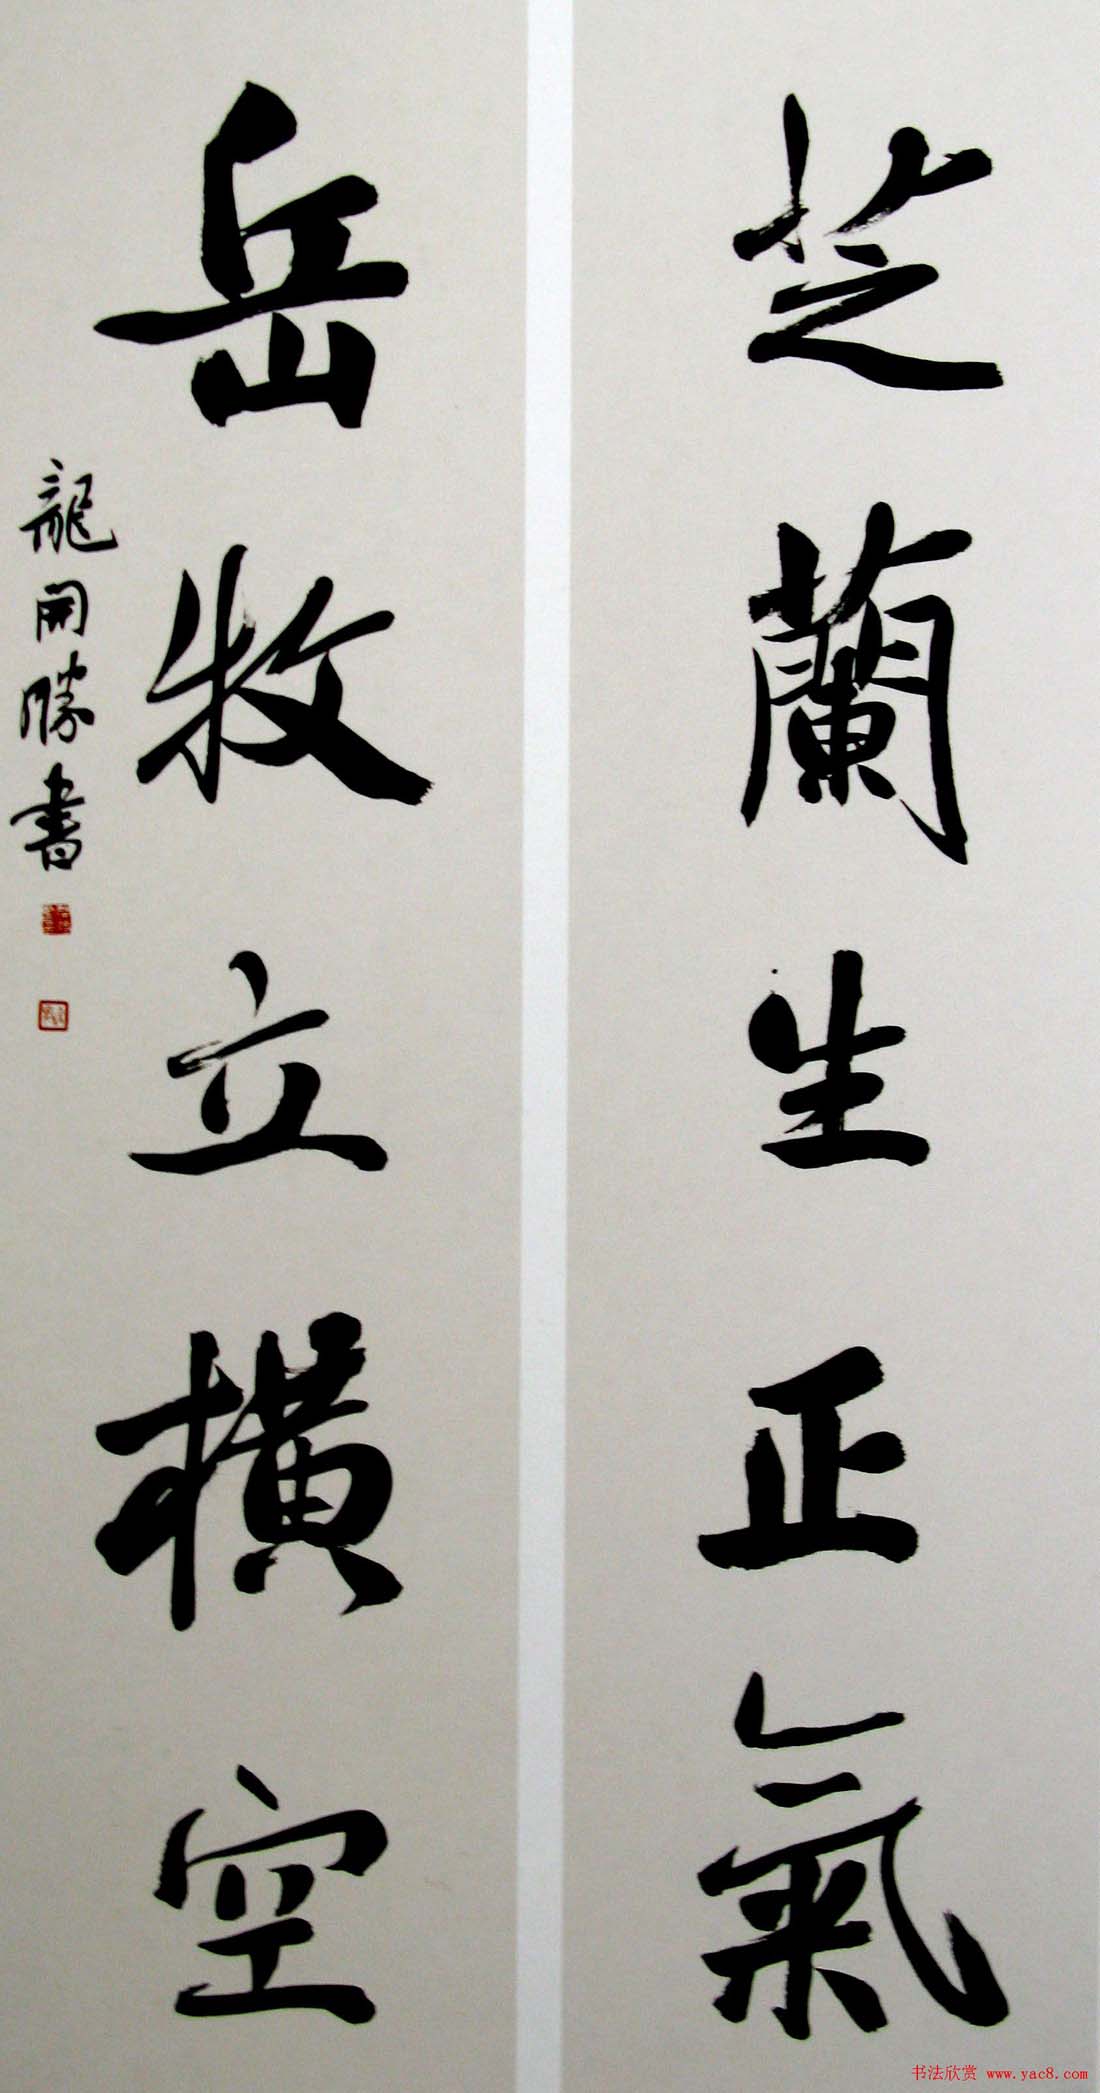 芝蘭生正氣
岳牧立橫空
龍開勝書
书法欣赏 www.yac8.com